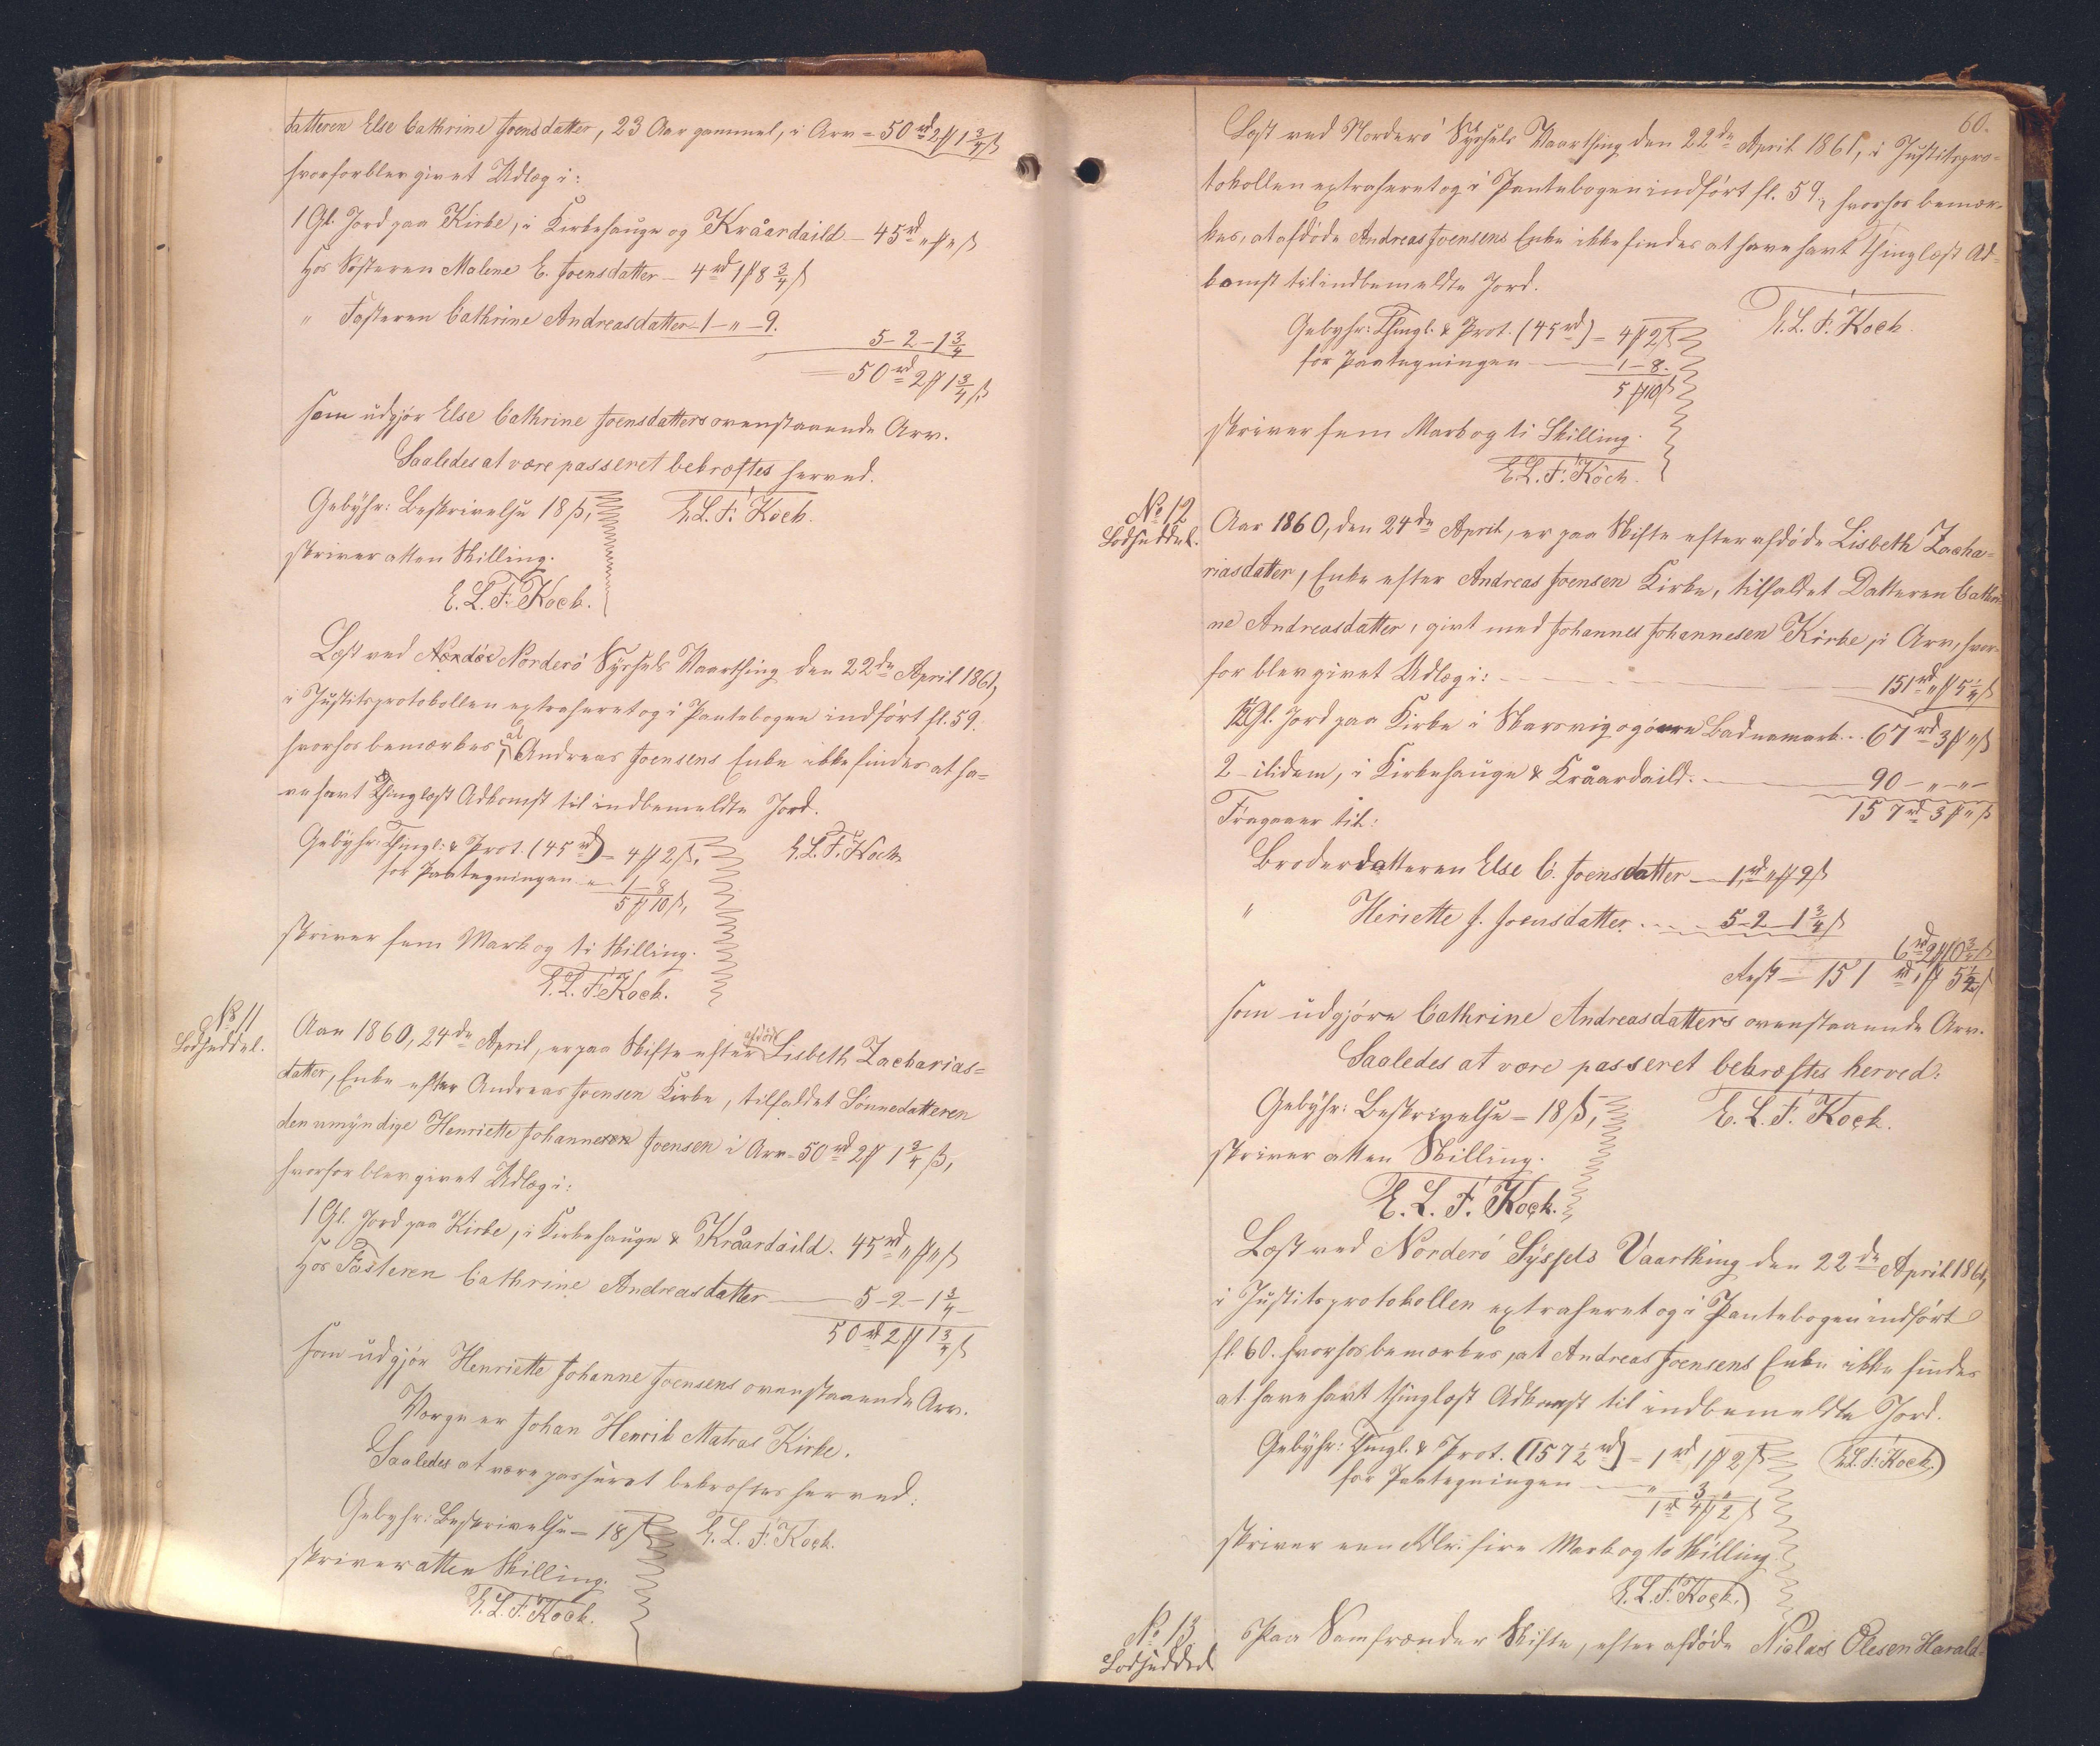 datteren Else Cathrine Joensdatter, 23 Aar gammel, i Arv = 50 rd 2 ℳ 1 3/4 ß
hvorfor blev givet Udlæg i:
1 Gl. Jord paa Kirke, i Kirkehauge og Kråardaild – 45 rd „ ℳ „ ß
Hos Søsteren Malene E. Joensdatter – 4 rd 1 ℳ 8 3/4 ß
„ Fasteren Cathrine Andreasdatter – 1 – „ – 9.
5 – 2 – 1 3/4
= 50 rd 2 ℳ 1 3/4 ß
som udgjør Else Cathrine Joensdatters ovenstaaende Arv.
Saaledes at være passeret bekræftes herved.
Gebyhr: Beskrivelse 18 ß,
E. L. F. Koch.
skriver atten Skilling.
E. L. F. Koch.
Læst ved Norderö Syssels Vaarthing den 22de April 1861,
i Justitsprotokollen extraheret og i Pantebogen indført fl. 59.
hvorhos bemærkes, at Andreas Joensens Enke ikke findes at ha=
ve havt Thinglæst Adkomst til indbemeldte Jord.
Gebyhr: Thingl: & Prot. (45 rd) = 4 ℳ 2 ß,
E. L. F. Koch
for Paategningen „ – 1 – 8
5 ℳ 10 ß,
skriver fem Mark og ti Skilling.
E. L. F. Koch.
No 11
Lodseddel.
Aar 1860, 24de April, er paa Skifte efter afdöde Lisbeth Zacharias=
datter, Enke efter Andreas Joensen Kirke, tilfaldet Sönnedatteren
den umyndige Henriette Johanne Joensen i Arv = 50 rd 2 ℳ 1 3/4 ß,
hvorfor blev givet Udlæg i:
1 Gl. Jord paa Kirke, i Kirkehauge & Kråardaild. 45 rd „ ℳ „ ß
Hos Fasteren Cathrine Andreasdatter – 5 – 2 – 1 3/4
50 rd 2 ℳ 1 3/4 ß
som udgjör Henriette Johanne Joensens ovenstaaende Arv.
Værge er Johan Henrik Matras Kirke.
Saaledes at være passeret bekræftes herved.
Gebyhr: Beskrivelse = 18 ß
E. L. F. Koch.
skriver atten Skilling.
E. L. F. Koch.
60.
Læst ved Norderö Syssels Vaarthing den 22de April 1861, i Justitspro=
tokollen extraheret og i Pantebogen indført fl. 59., hvorhos bemær=
kes, at afdöde Andreas Joensens Enke ikke findes at have havt thinglæst Ad=
komst til indbemeldte Jord.
E. L. F. Koch.
Gebyhr: Thingl. & Prot. (45 rd) = 4 ℳ 2 ß
for Paategningen – 1 – 8.
5 ℳ 10 ß
skriver fem Mark og ti Skilling.
E. L. F. Koch.
No 12
Lodseddel.
Aar 1860, den 24de April, er paa Skifte efter afdöde Lisbeth Zacha=
riasdatter, Enke efter Andreas Joensen Kirke, tilfaldet Datteren Cathri
ne Andreasdatter, givt med Johannes Johannesen Kirke, i Arv, hvor=
for blev givet Udlæg i: 151 rd „ ℳ 5 1/4 ß
1 1/2 Gl. Jord paa Kirke i Skarsvig og övre Badnamark .. 67 rd 3 ℳ „ ß
2 – ibidem, i Kirkehauge & Kråardaild. 90 – „ – „ –
157 rd 3 ℳ „ ß
Fragaaer til:
Broderdatteren Else C. Joensdatter – 1 rd „ ℳ 9 ß
„ Heriette J. Joensdatter. 5 – 2 – 1 3/4 ß
6 rd 2 ℳ 10 3/4 ß
Rest = 151 rd „ ℳ 5 1/4 ß
som udgjöre Cathrine Andreasdatters ovenstaaende Arv.
Saaledes at være passeret bekræftes herved.
Gebyhr: Beskrivelse = 18 ß,
E. L. F. Koch.
skriver atten Skilling.
E. L. F. Koch.
Læst ved Norderö Syssels Vaarthing den 22de April 1861,
i Justitsprotokollen extraheret og i Pantebogen indført
fl. 60. hvorhos bemærkes, at Andreas Joensens Enke ikke findes
at have havt thinglæst Adkomst til indbemeldte Jord.
Gebyhr: Thingl. & Prot. (157 1/2 rd) = 1 rd 1 ℳ 2 ß
E. L. F. Koch.
for Paategningen – „ 3 „
1 rd 4 ℳ 2 ß
skriver een Rdlr. fire Mark og to Skilling.
E. L. F. Koch.
No 13
Lodseddel
Paa Samfrænder Skifte, efter afdöde Niclas Olesen Harald=